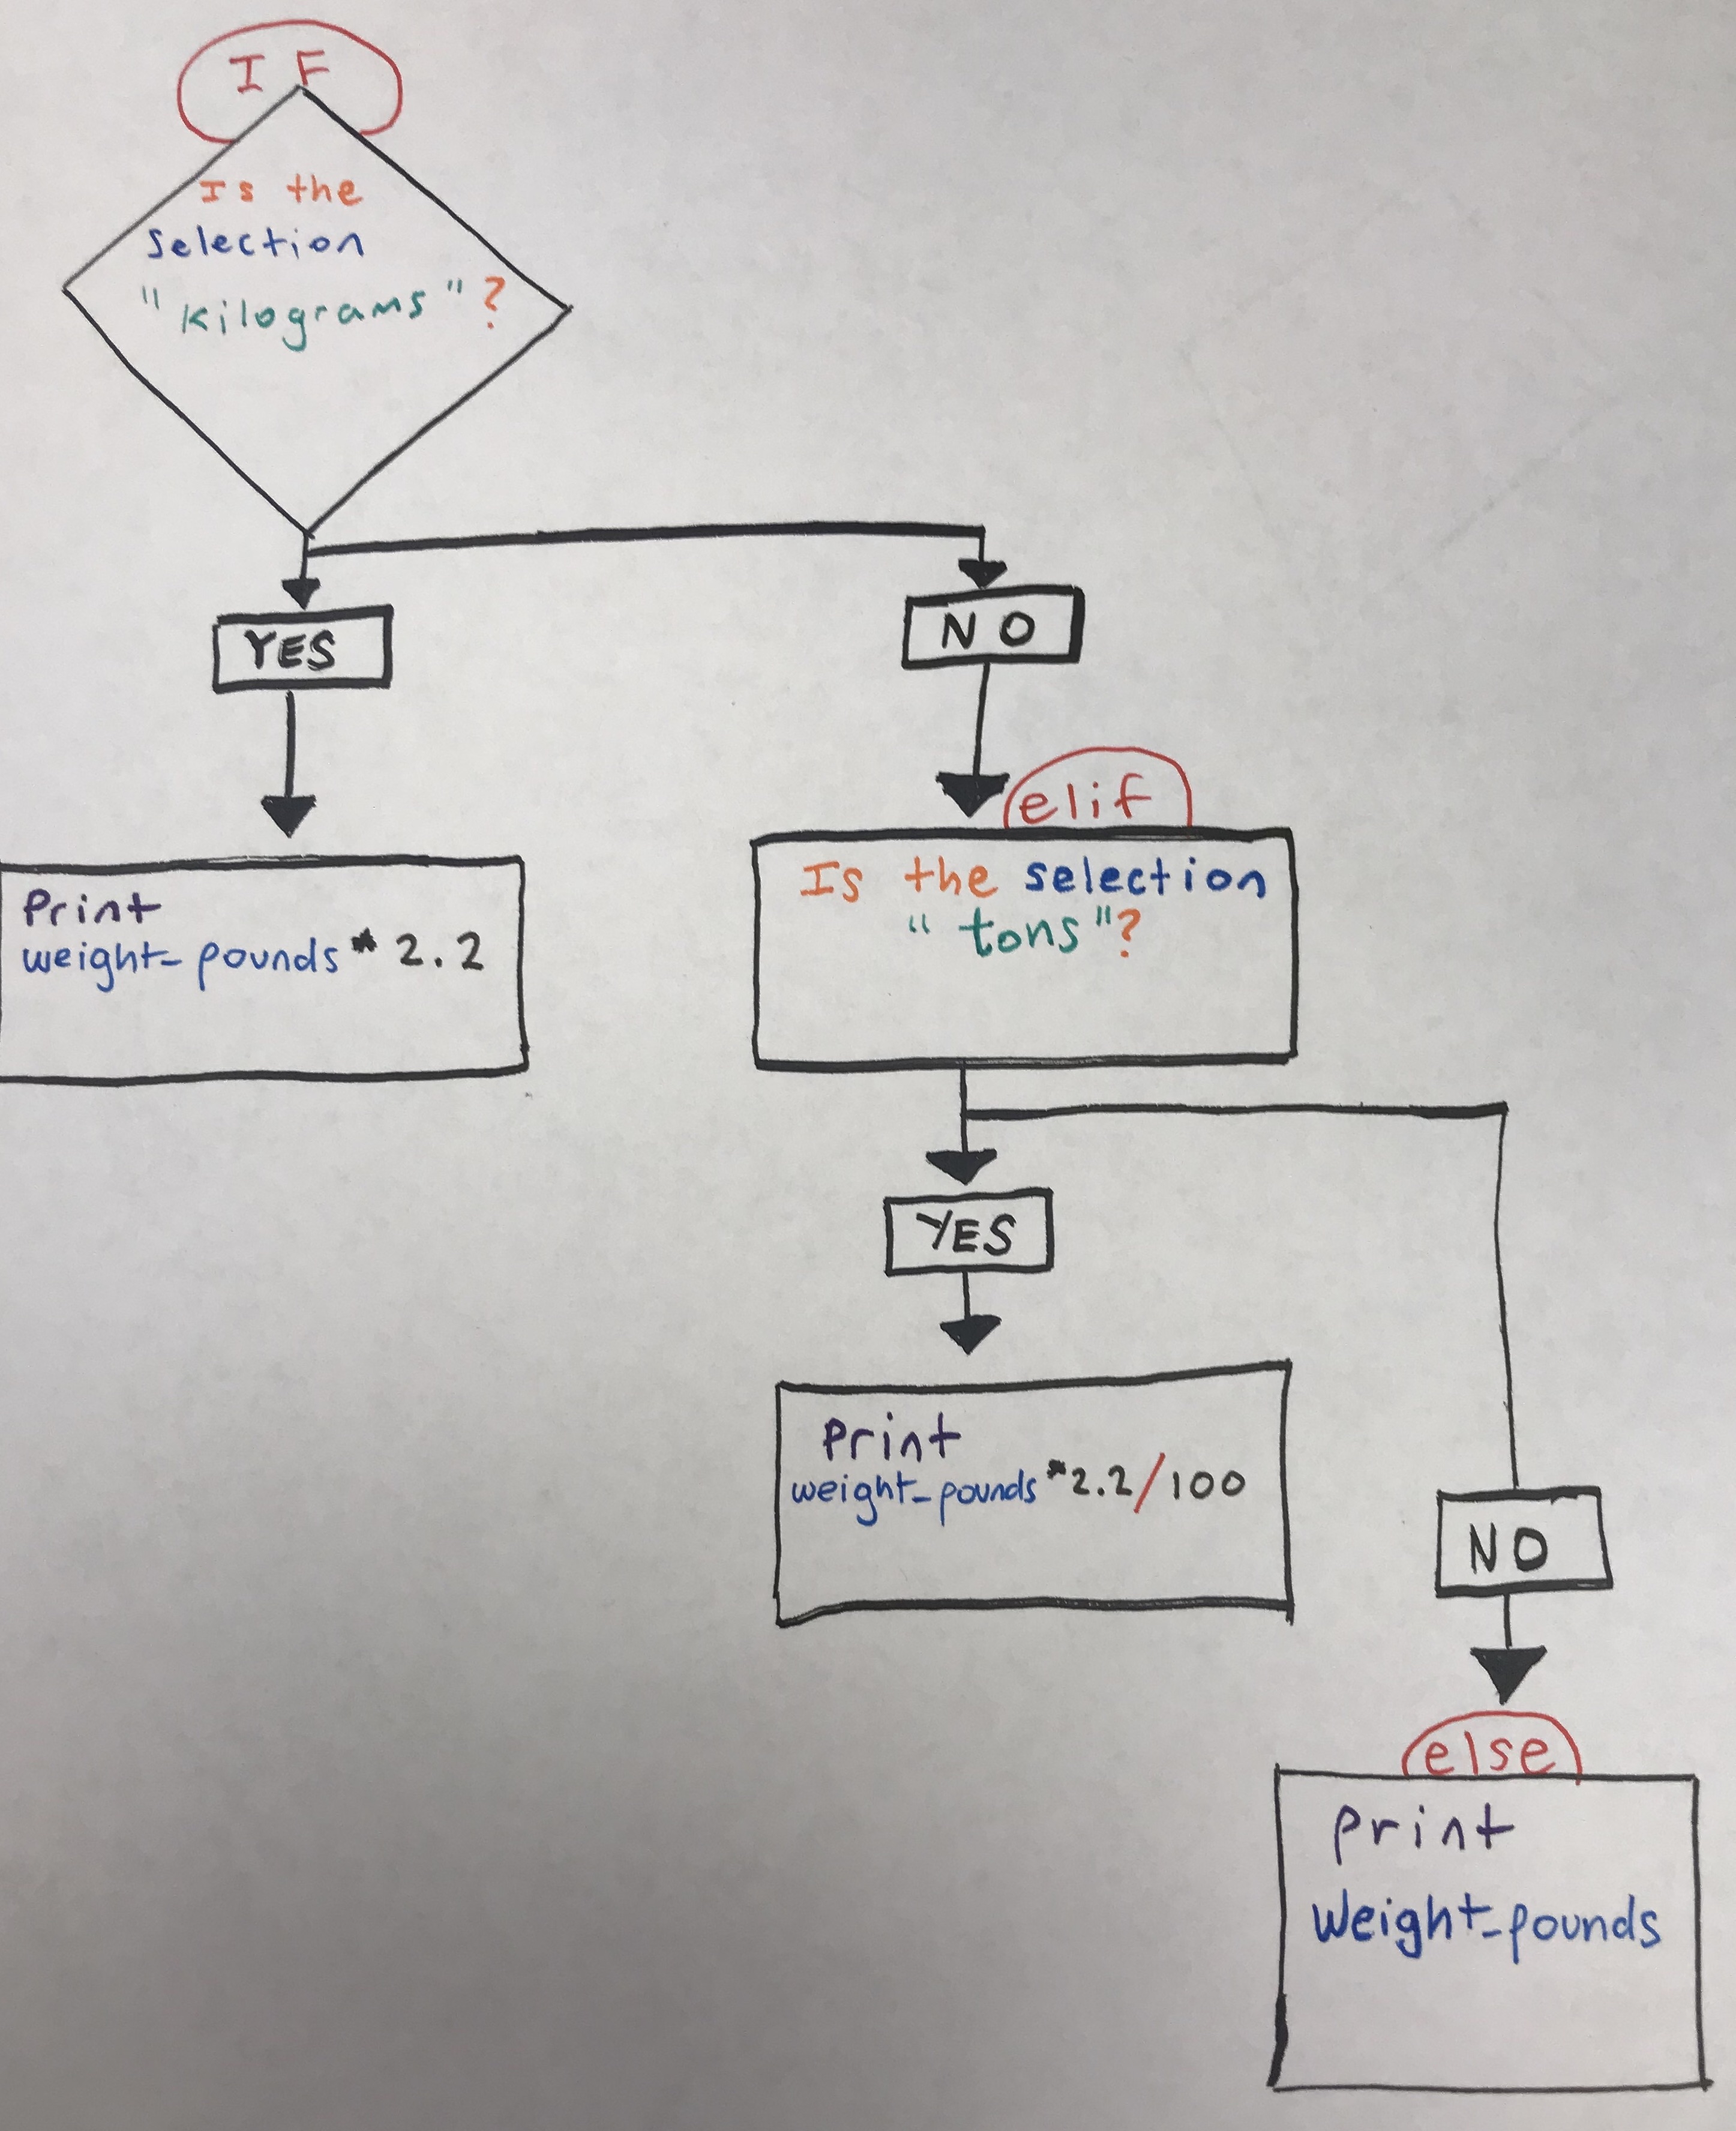 IF
Is the
selection
"kilograms"?
YES
NO
Print
weight_pounds * 2.2
elif
Is the selection
"tons"?
YES
Print
weight_pounds *2.2/100
NO
else
print
Weight_pounds